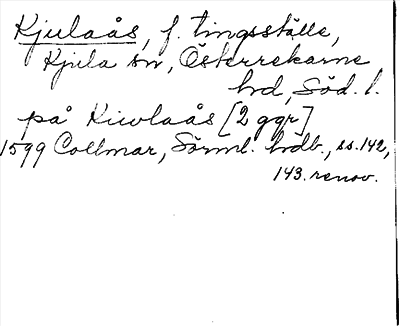 Kjulaås, f. tingsställe,
Kjula sn, Österrekarne
hd, Söd. l.
på Kiwlaås [2 ggr]
1599 Collmar, Sörml. hrdb., ss. 142,
143. renov.